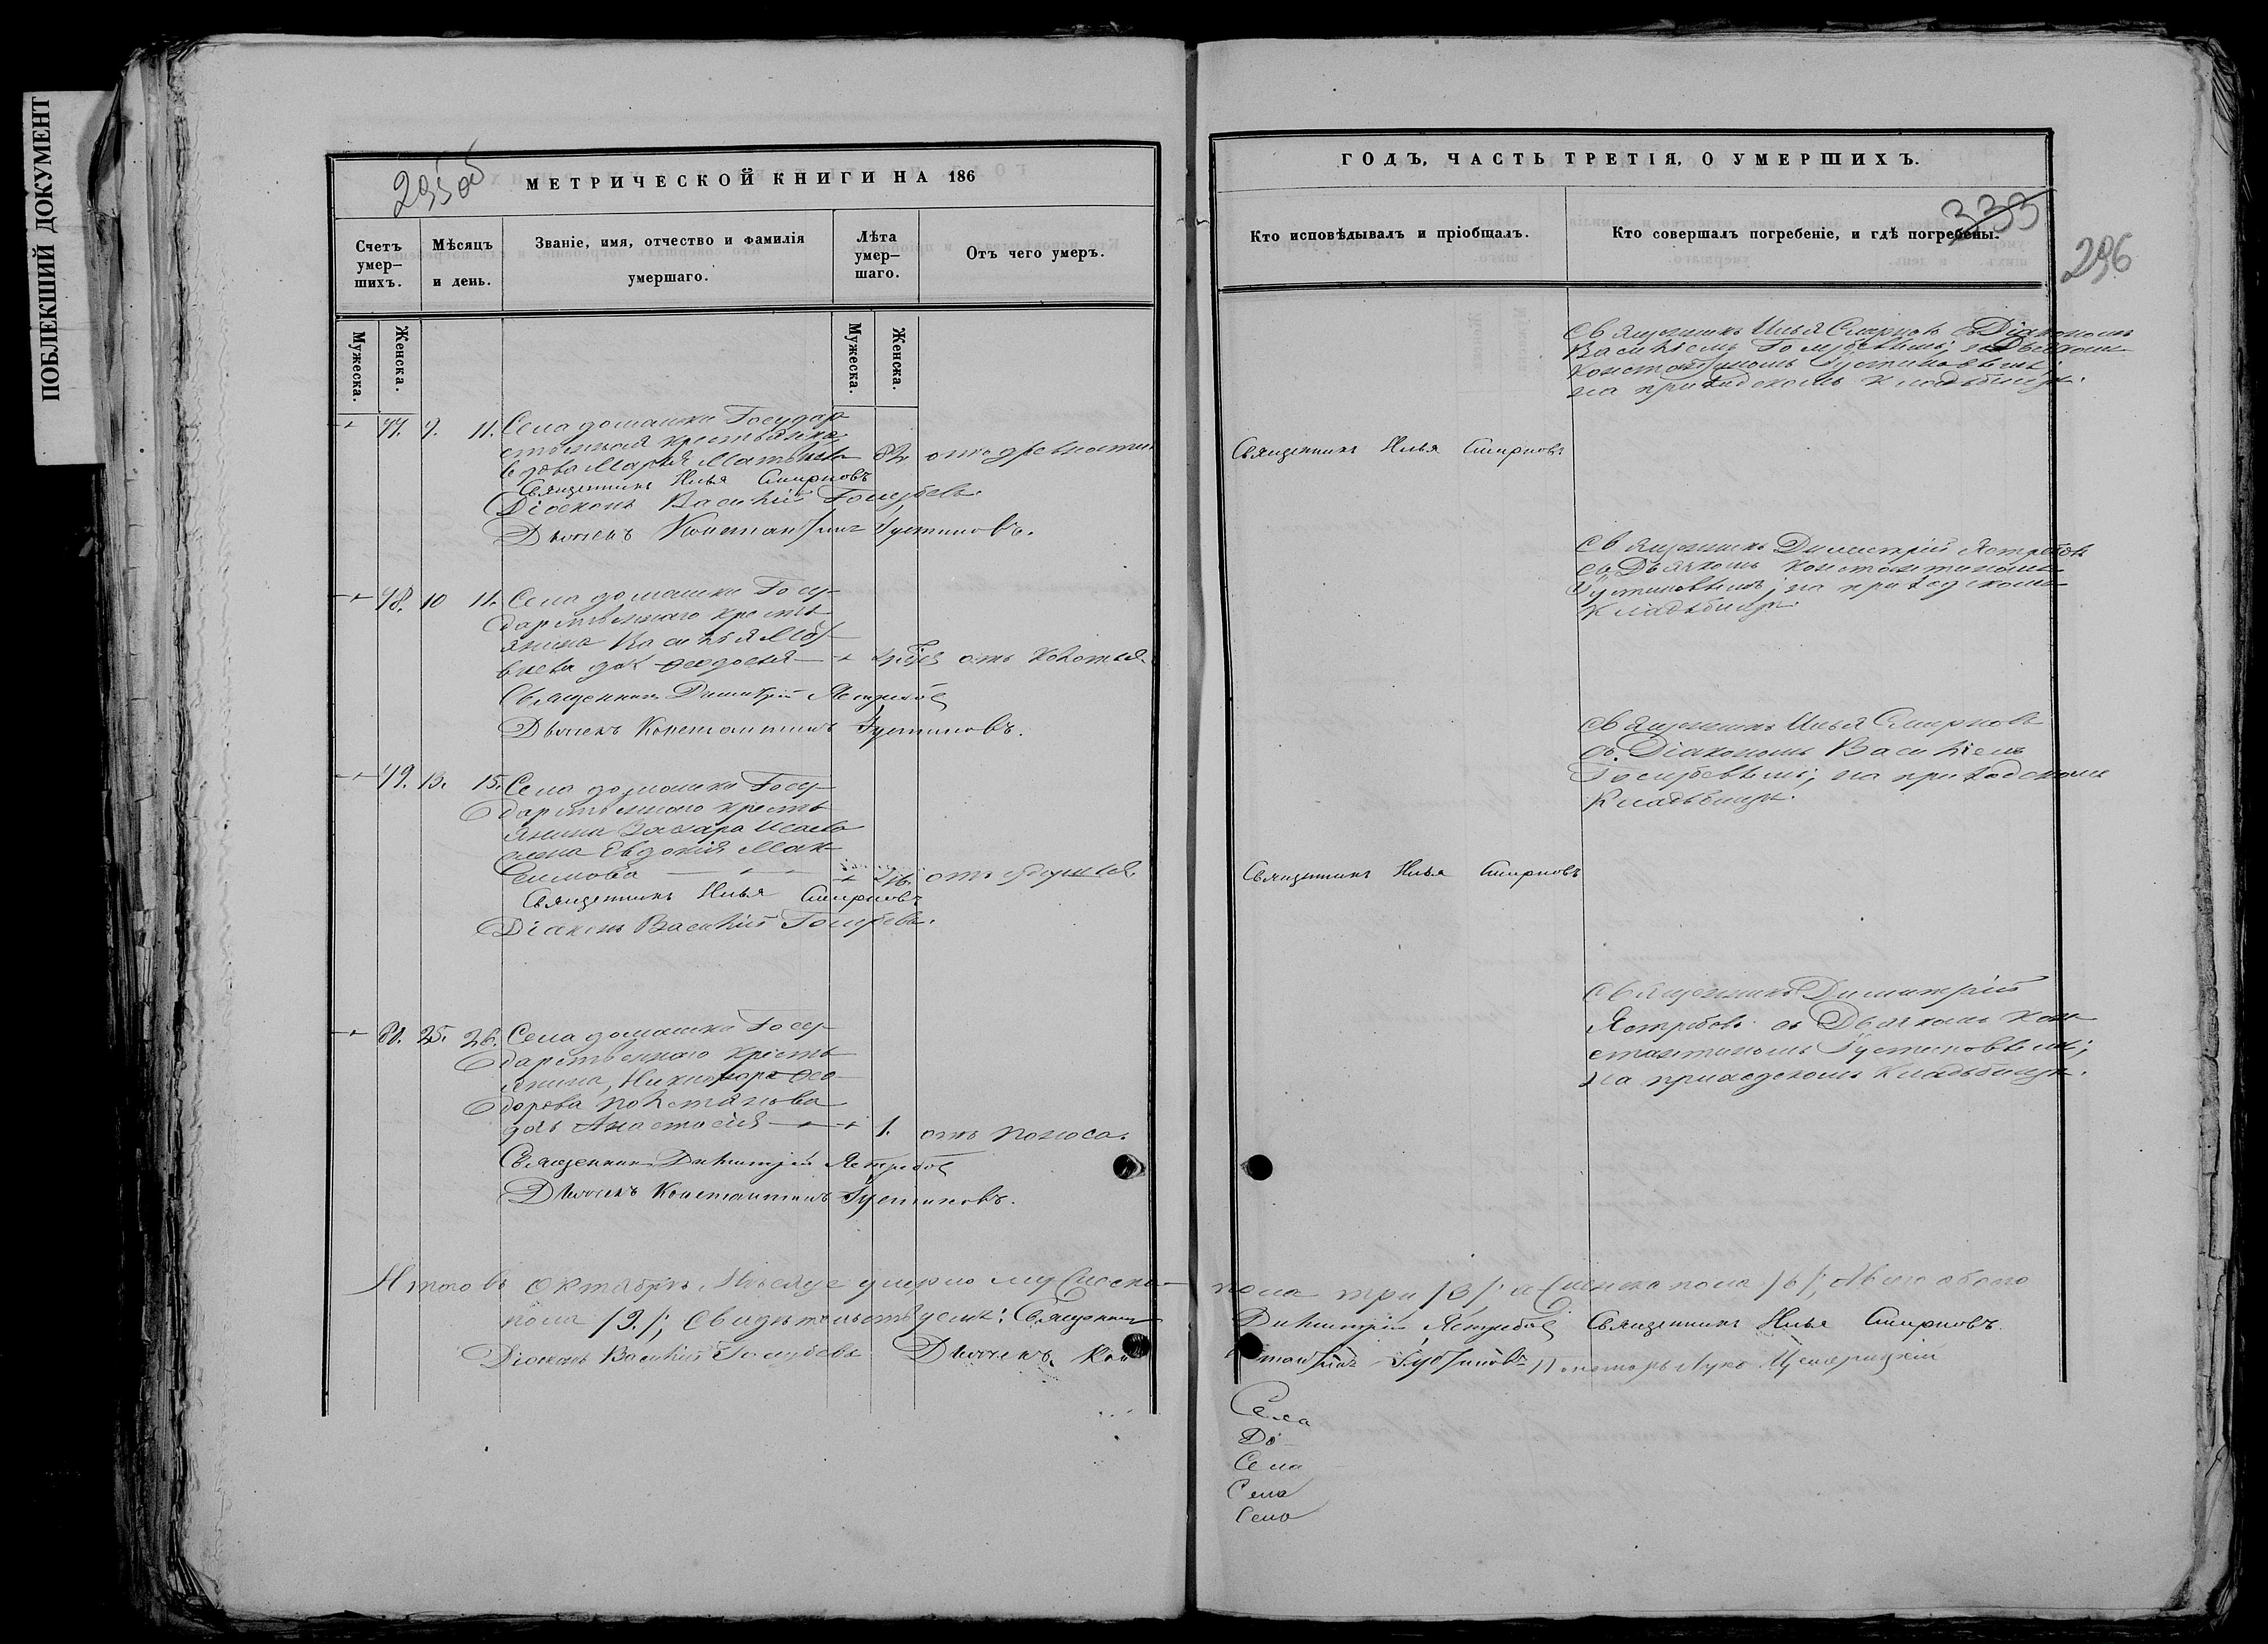 ПОБЛЕКШИЙ ДОКУМЕНТ
295об
МЕТРИЧЕСКОЙ КНИГИ НА 186
Счетъ умер-шихъ.
Мѣсяцъ и день.
Званіе, имя, отчество и фамилія умершаго.
Лѣта умер-шаго.
Отъ чего умеръ.
Мужеска.
Женска.
Мужеска.
Женска.
77. 9. 11. Села домашки Государ
ственная крестьянка
вдова Марья Матвѣева 82 отъ древности
Священникъ Илья Смирновъ
Діаконъ Василій Голубевъ.
Дьячекъ Константинъ Густиновъ.
78. 10 11. Села домашки Госу-
дарственнаго кресть
янина Василья
дочь Феодосья отъ
Священникъ Димитрій Ястребовъ
Дьячекъ Константинъ Густиновъ.
79. 13. 15. Села домашки Госу-
дарственнаго кресть
янина Захара Исаева
жена Евдокія Мак-
симова отъ
Священникъ Илья Смирновъ
Діаконъ Василій Голубевъ.
80. 25. 26. Села домашки Госу-
дарственнаго кресть
янина, Никифора Фео-
дорова
дочь Анастасія 1. отъ поноса.
Священникъ Димитрій Ястребовъ
Дьячекъ Константинъ Густиновъ.
Итого въ Октябрѣ Мѣсяце умерло мужеска
пола /3/; Свидѣтельствуемъ: Священникъ
Діаконъ Василій Голубевъ Дьячекъ Кон
ГОДЪ, ЧАСТЬ ТРЕТІЯ, О УМЕРШИХЪ.
333
296
Кто исповѣдывалъ и пріобщалъ.
Кто совершалъ погребеніе, и гдѣ погребены.
Священникъ Илья Смирновъ съ Діакономъ
Василіемъ Голубевымъ, и Дьячкомъ
Константиномъ Густиновымъ;
на приходскомъ кладбищѣ.
Священникъ Илья Смирновъ
Священникъ Димитрій Ястребовъ
съ Дьячкомъ Константиномъ
Густиновымъ; на приходскомъ
кладбищѣ.
Священникъ Илья Смирновъ
съ Діакономъ Василіемъ
Голубевымъ; на приходскомъ
кладбищѣ.
Священникъ Илья Смирновъ
Священникъ Димитрій
Ястребовъ съ Дьячкомъ Кон
стантиномъ Густиновымъ;
на приходскомъ кладбищѣ.
пола три /3/ а женска пола /6/; Всего обоего
Димитрій Ястребовъ Священникъ Илья Смирновъ.
стантинъ Густиновъ Пономарь Лука
Села
До
Села
Села
Села